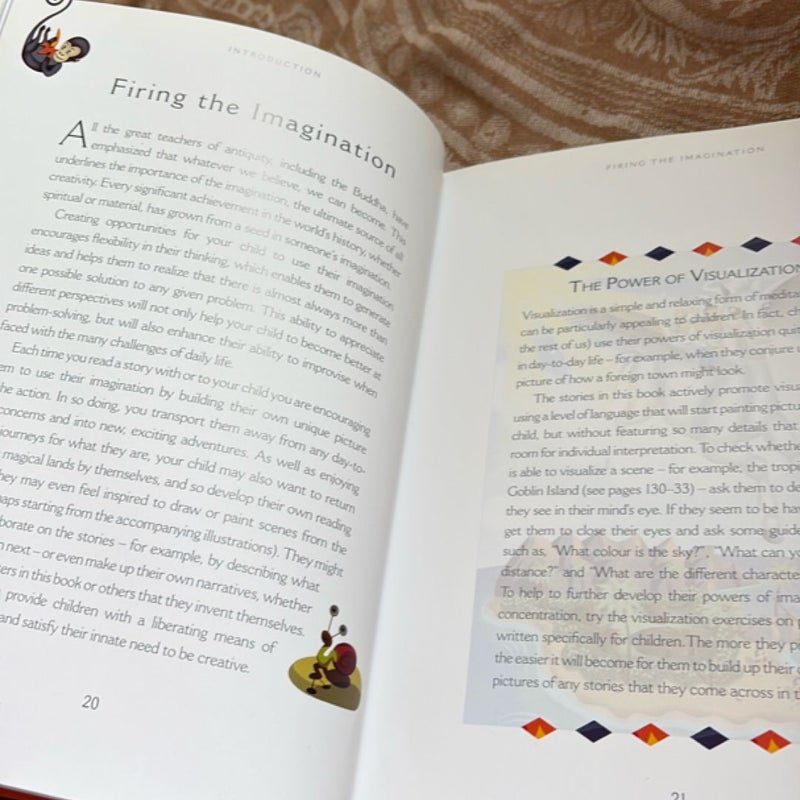 INTRODUCTION
Firing the Imagination
All the great teachers of antiquity, including the Buddha, have
emphasized that whatever we believe, we can become. This
underlines the importance of the imagination, the ultimate source of all
creativity. Every significant achievement in the world's history, whether
spiritual or material, has grown from a seed in someone's imagination.
Creating opportunities for your child to use their imagination
encourages flexibility in their thinking, which enables them to generate
ideas and helps them to realize that there is almost always more than
one possible solution to any given problem. This ability to appreciate
different perspectives will not only help your child to become better at
problem-solving, but will also enhance their ability to improvise when
faced with the many challenges of daily life.
Each time you read a story with or to your child you are encouraging
em to use their imagination by building their own unique picture
he action. In so doing, you transport them away from any day-to-
concerns and into new, exciting adventures. As well as enjoying
journeys for what they are, your child may also want to return
magical lands by themselves, and so develop their own reading
hey may even feel inspired to draw or paint scenes from the
aps starting from the accompanying illustrations). They might
borate on the stories – for example, by describing what
n next – or even make up their own narratives, whether
ers in this book or others that they invent themselves.
provide children with a liberating means of
and satisfy their innate need to be creative.
20
FIRING THE IMAGINATION
THE POWER OF VISUALIZATION
Visualization is a simple and relaxing form of medita
can be particularly appealing to children. In fact, ch
the rest of us) use their powers of visualization quit
in day-to-day life – for example, when they conjure u
picture of how a foreign town might look.
The stories in this book actively promote visu
using a level of language that will start painting pictu
child, but without featuring so many details that
room for individual interpretation. To check whethe
is able to visualize a scene – for example, the tropi
Goblin Island (see pages 130–33) – ask them to de
they see in their mind's eye. If they seem to be ha
get them to close their eyes and ask some guide
such as, "What colour is the sky?", "What can yo
distance?" and "What are the different characte
To help to further develop their powers of ima
concentration, try the visualization exercises on p
written specifically for children. The more they p
the easier it will become for them to build up their
pictures of any stories that they come across in t
21